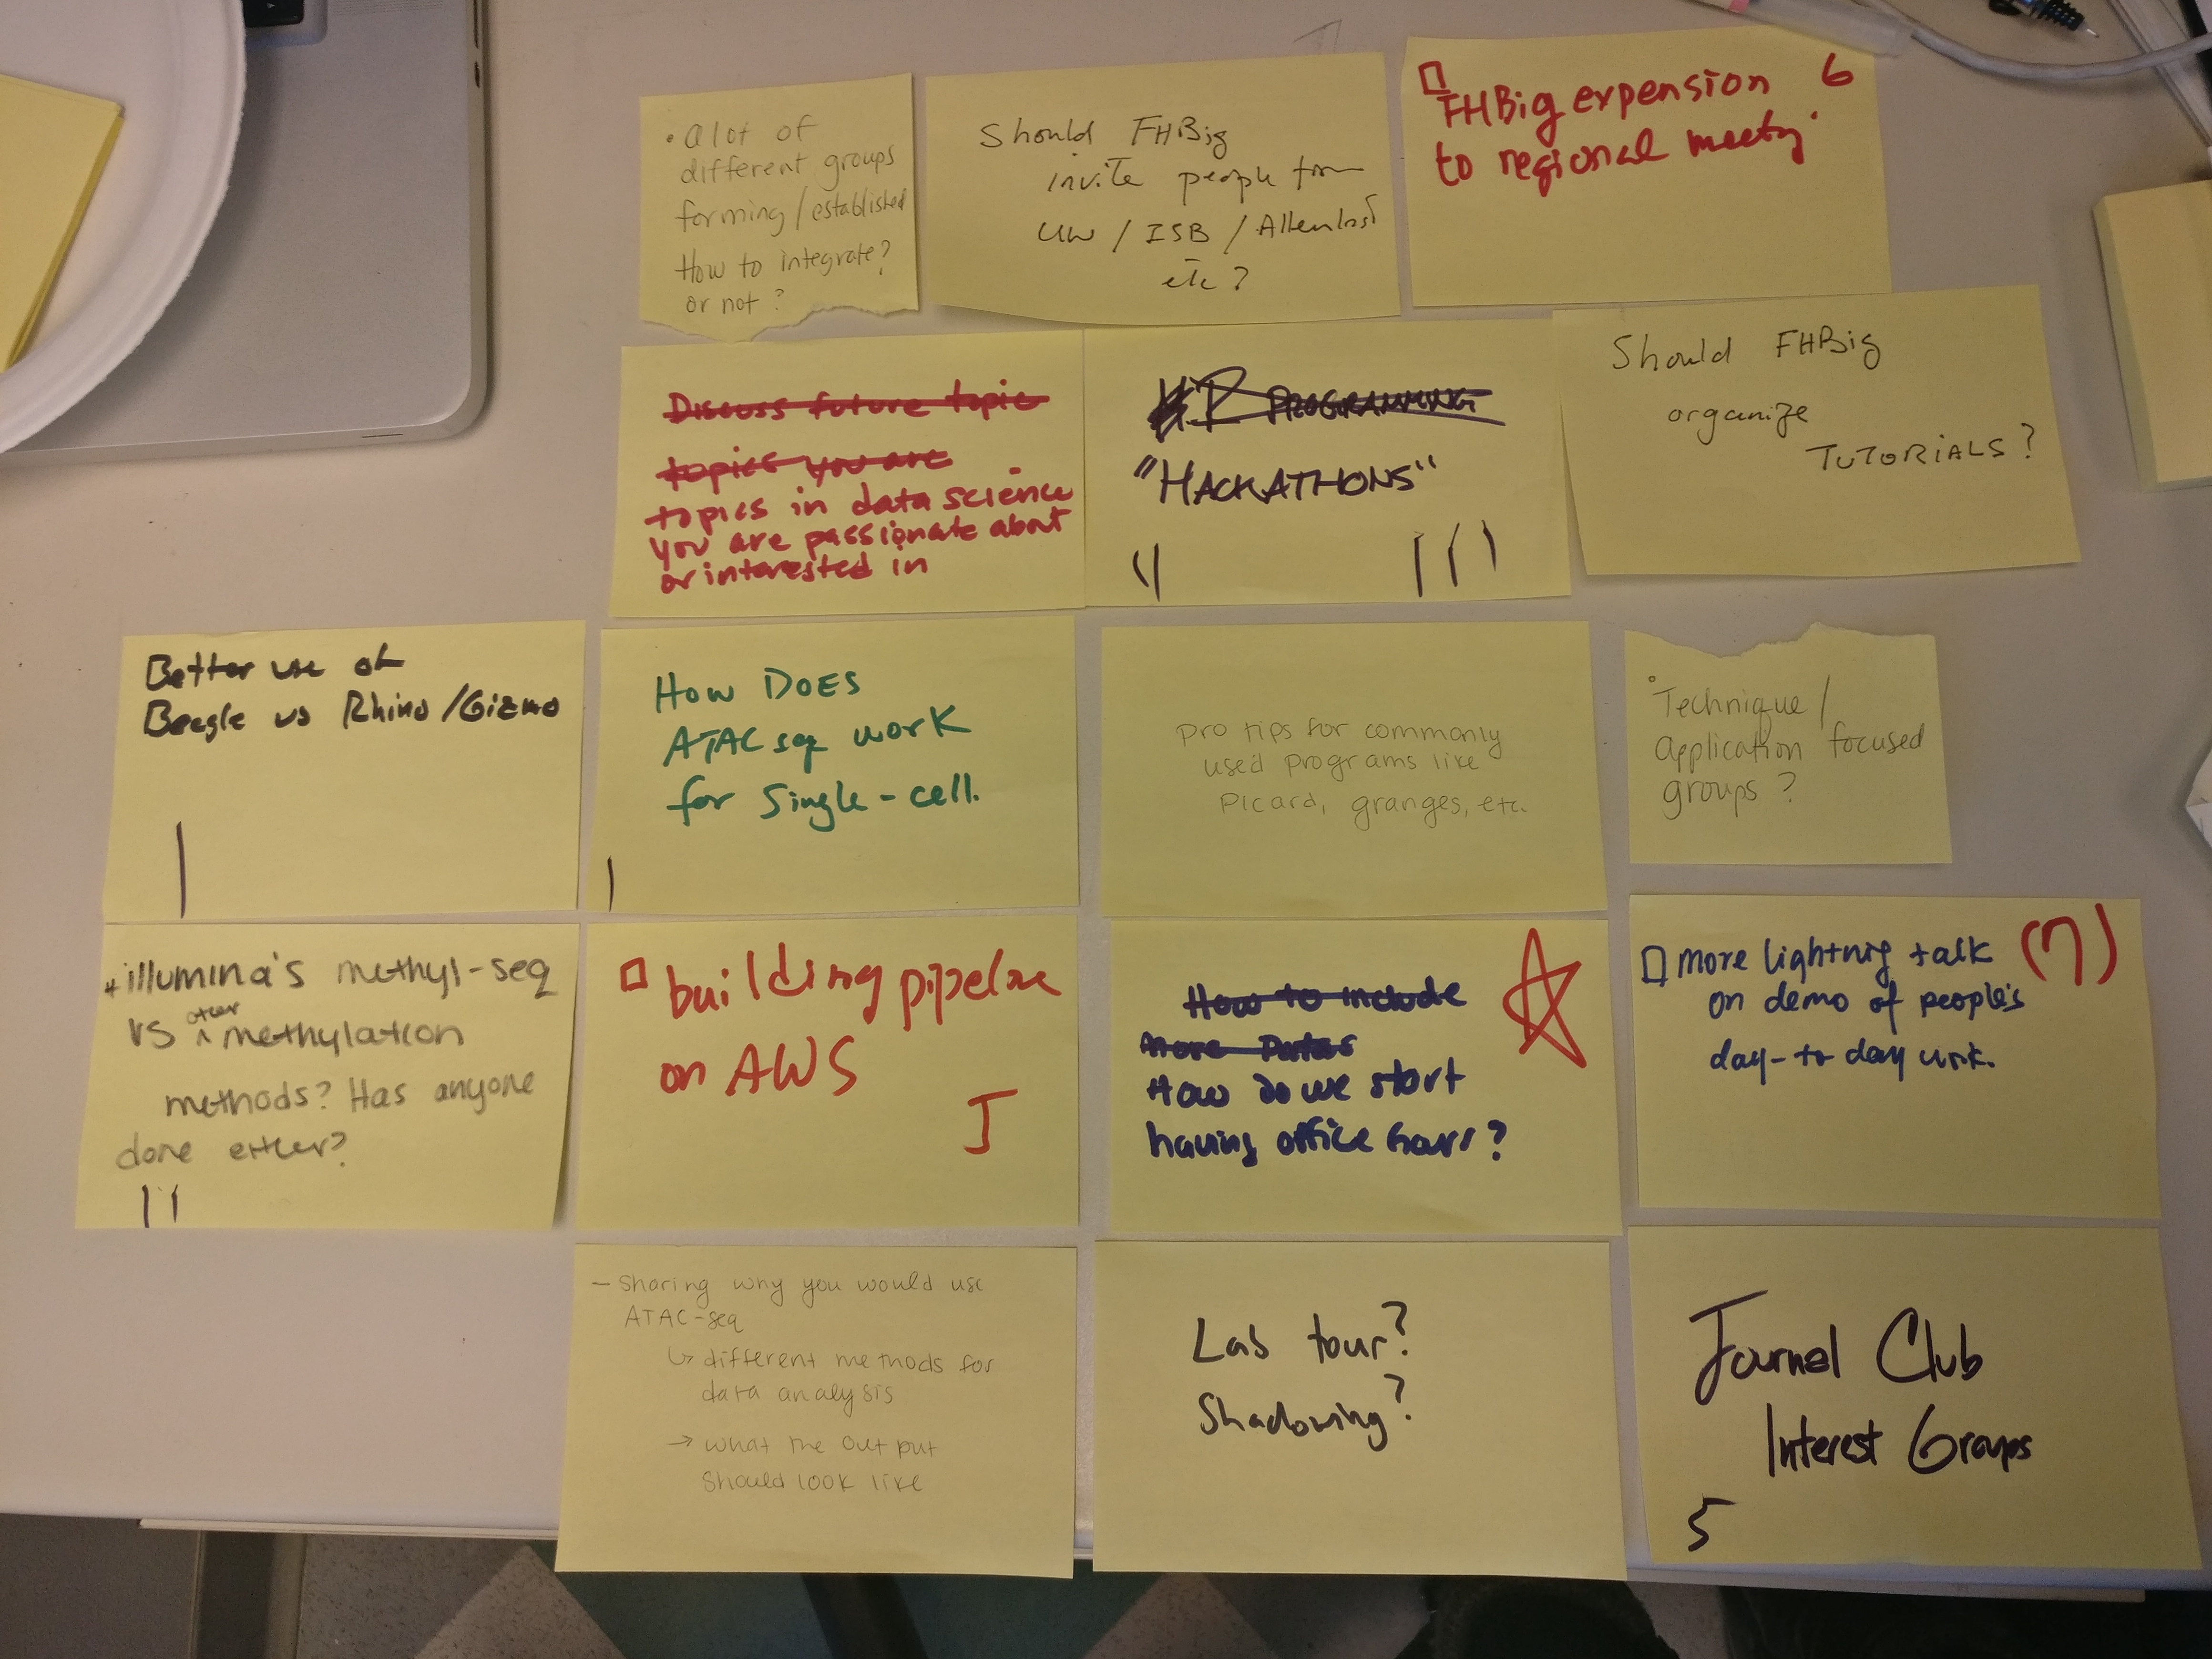 • a lot of
different groups
forming / established
How to integrate?
or not?
Should FHBig
invite people from
UW / ISB / AllenInst
etc?
FHBig expension 6
to regional meetng.
Discuss future topic
topics you are
topics in data science
you are passionate about
or interested in
PROGRAMMING
"HACKATHONS"
|| |||
Should FHBig
organize
TUTORIALS?
Better use of
Beagle vs Rhino/Gizmo
|
How DOES
ATAC seq work
for Single-cell.
|
Pro tips for commonly
used programs like
Picard, granges, etc.
• Technique/
Application focused
groups?
illumina's methyl-seq
vs other methylation
methods? Has anyone
done either?
||
building pipeline
on AWS
How to include
more
How do we start
having office hours?
more lightnig talk (7)
on demo of people's
day-to day work.
- Sharing why you would use
ATAC-seq
↳ different methods for
data analysis
→ what the output
should look like
Lab tour?
Shadowing?
Journal Club
Interest Groups
5